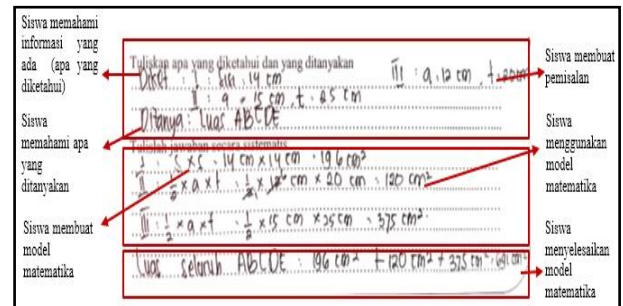 Siswa memahami
informasi yang
ada (apa yang
diketahui)
Siswa
memahami apa
yang
ditanyakan
Siswa membuat
model
matematika
Tuliskan apa yang diketahui dan yang ditanyakan
Diket : I : sisi . 14 cm
III : a . 12 cm , t . 20 cm
II : a = 15 cm , t . 25 cm
Ditanya : Luas ABCDE
Tulislah jawaban secara sistematis
I s x s . 14 cm x 14 cm . 196 cm²
II 1/2 x a x t . 1/2 x 12 cm x 20 cm . 120 cm²
III : 1/2 x a x t . 1/2 x 15 cm x 25 cm . 375 cm²
Luas seluruh ABCDE : 196 cm² + 120 cm² + 375 cm² . 691 cm²
Siswa membuat
pemisalan
Siswa
menggunakan
model
matematika
Siswa
menyelesaikan
model
matematika